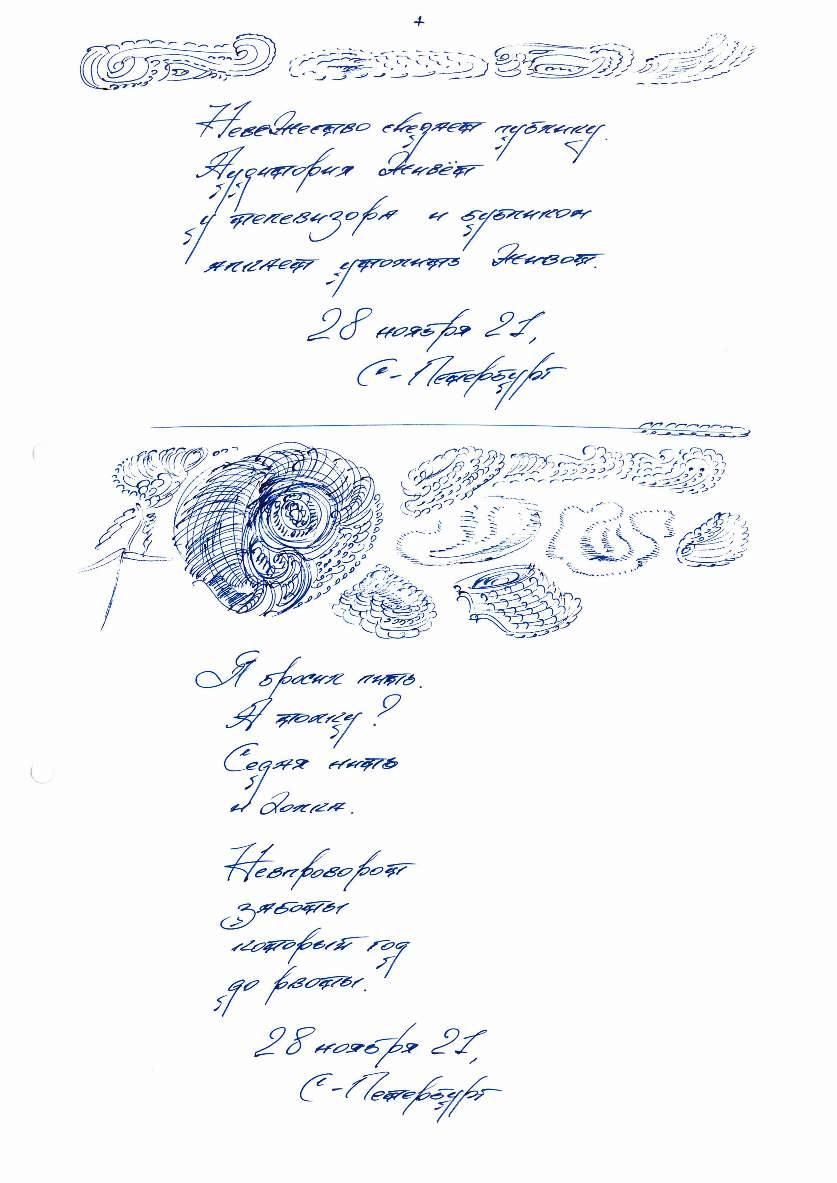 Невежество снедает публику.
Аудитория живёт
у телевизора и бубликом
алкает утолить живот.
28 ноября 21,
С-Петербург
Я бросил пить.
А толку?
Седая нить
и
Невпроворот
заботы
который год
до рвоты.
28 ноября 21,
С-Петербург